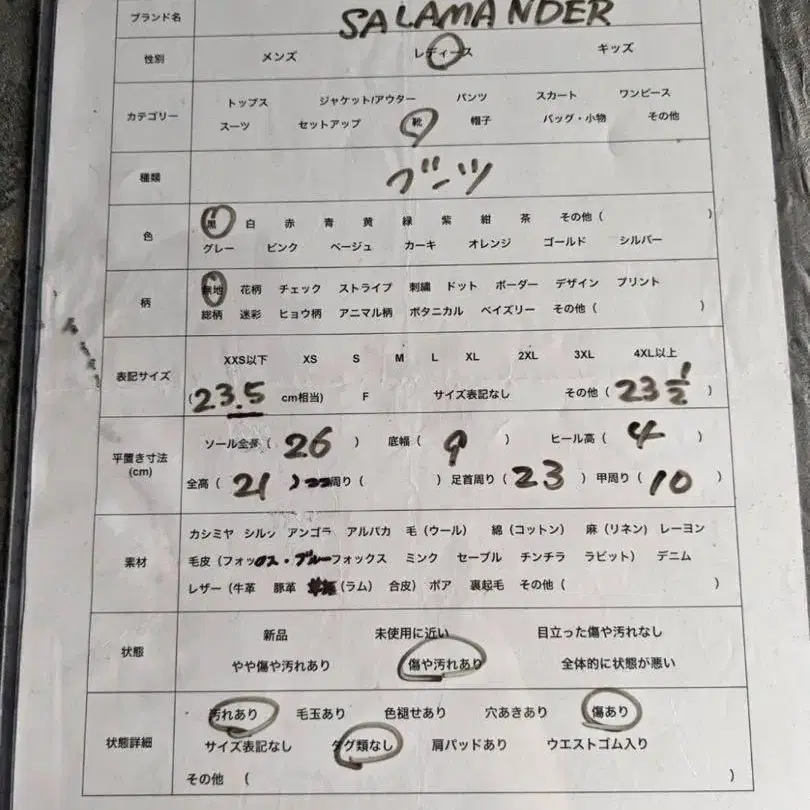 ブランド名 SALAMANDER
性別 メンズ レディース キッズ
カテゴリー トップス ジャケット/アウター パンツ スカート ワンピース
スーツ セットアップ 靴 帽子 バッグ・小物 その他
種類 ブーツ
色 黒 白 赤 青 黄 緑 紫 紺 茶 その他 ( )
グレー ピンク ベージュ カーキ オレンジ ゴールド シルバー
柄 無地 花柄 チェック ストライプ 刺繍 ドット ボーダー デザイン プリント
総柄 迷彩 ヒョウ柄 アニマル柄 ボタニカル ペイズリー その他 ( )
表記サイズ XXS以下 XS S M L XL 2XL 3XL 4XL以上
(23.5 cm相当) F サイズ表記なし その他 ( 23 1/2 )
平置き寸法 (cm) ソール全長 ( 26 ) 底幅 ( 9 ) ヒール高 ( 4 )
全高 ( 21 ) 周り ( ) 足首周り ( 23 ) 甲周り ( 10 )
素材 カシミヤ シルク アンゴラ アルパカ 毛 (ウール) 綿 (コットン) 麻 (リネン) レーヨン
毛皮 (フォックス・ブルーフォックス ミンク セーブル チンチラ ラビット) デニム
レザー (牛革 豚革 (ラム) 合皮) ボア 裏起毛 その他 ( )
状態 新品 未使用に近い 目立った傷や汚れなし
やや傷や汚れあり 傷や汚れあり 全体的に状態が悪い
状態詳細 汚れあり 毛玉あり 色褪せあり 穴あきあり 傷あり
サイズ表記なし タグ類なし 肩パッドあり ウエストゴム入り
その他 ( )